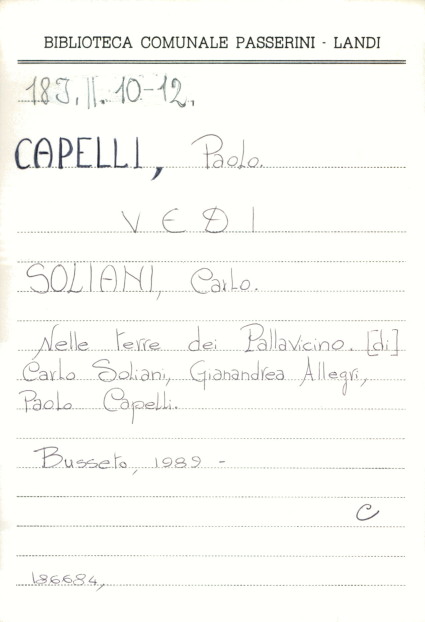 BIBLIOTECA COMUNALE PASSERINI - LANDI
18J.II.10-12.
CAPELLI, Paolo.
VEDI
SOLIANI, Carlo.
Nelle terre dei Pallavicino. [di]
Carlo Soliani, Gianandrea Allegri,
Paolo Capelli.
Busseto, 1989 -
C
186684,